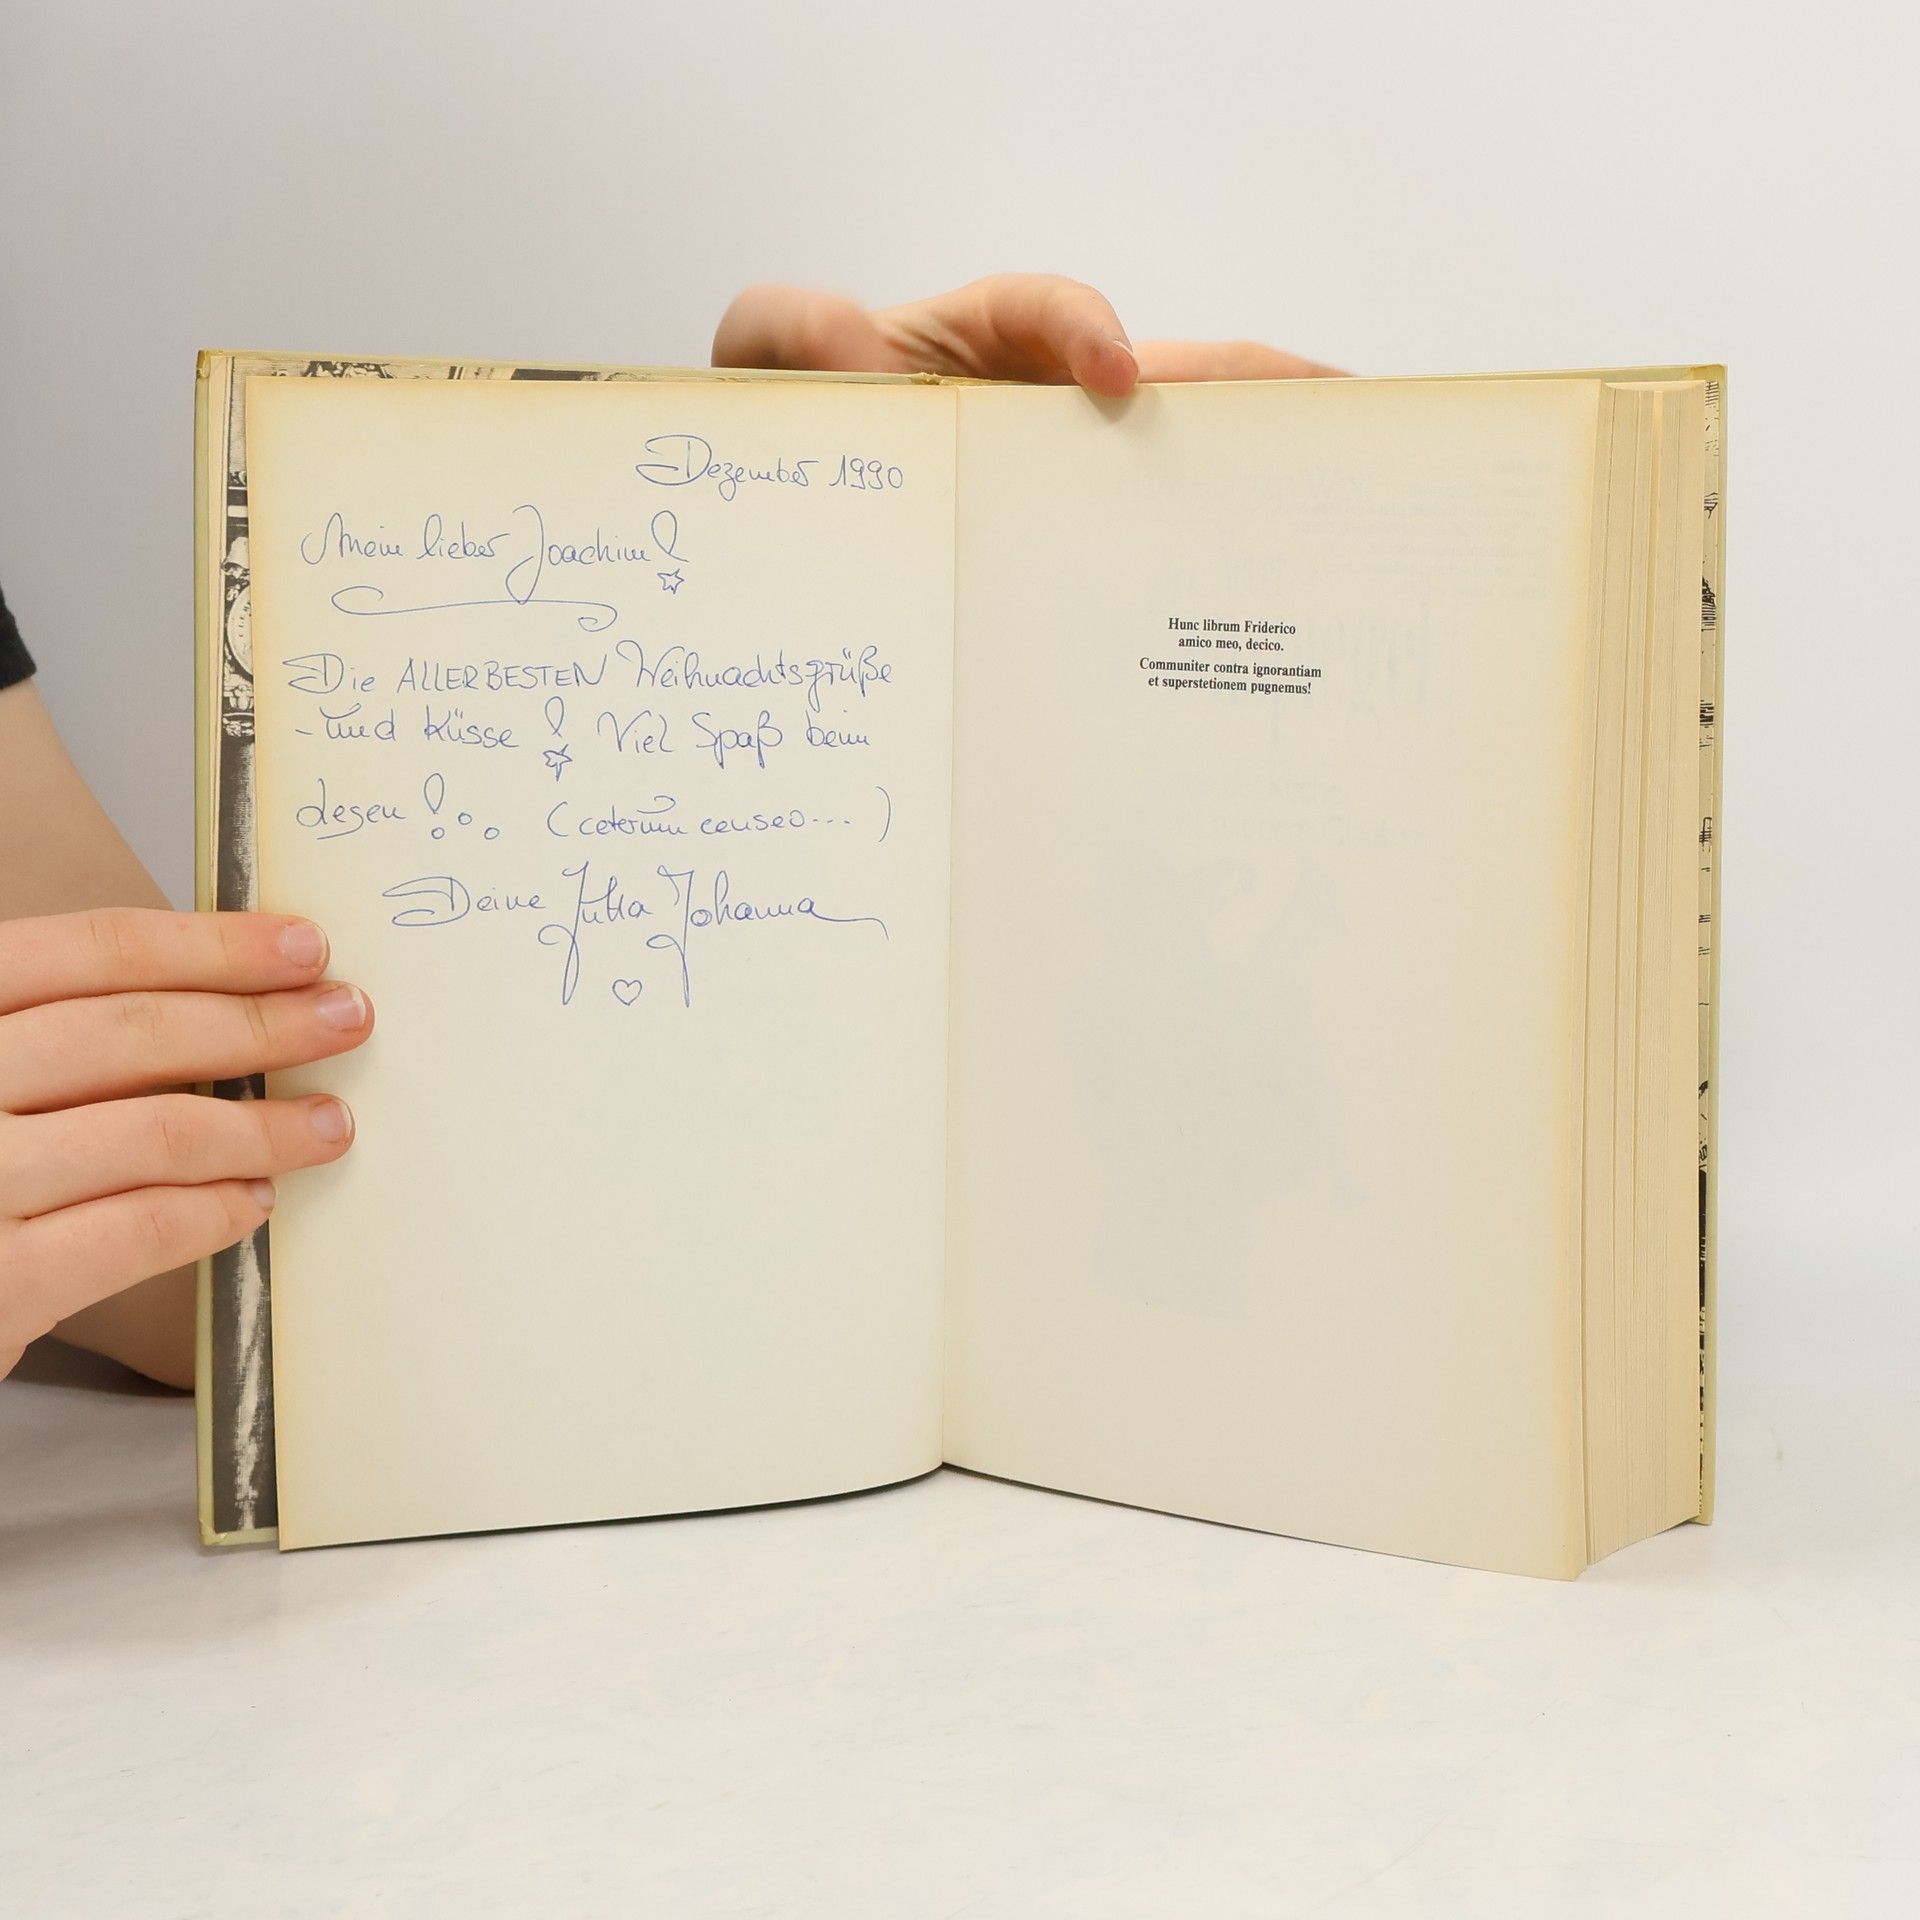 Dezember 1990
Mein lieber Joachim!
Die ALLERBESTEN Weihnachtsgrüße
- und Küsse! Viel Spaß beim
Lesen!... (ceterum censeo...)
Deine Jutta Johanna
Hunc librum Friderico
amico meo, decico.
Communiter contra ignorantiam
et superstetionem pugnemus!